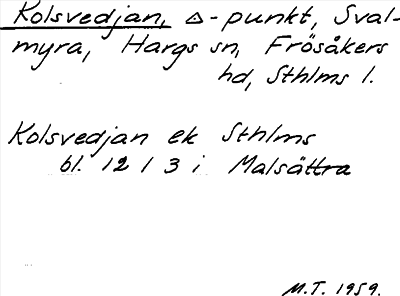 Kolsvedjan, △-punkt, Sval-
myra, Hargs sn, Frösåkers
hd, Sthlms l.
Kolsvedjan ek Sthlms
bl. 12 1 3 i Malsättra
M.T. 1959.